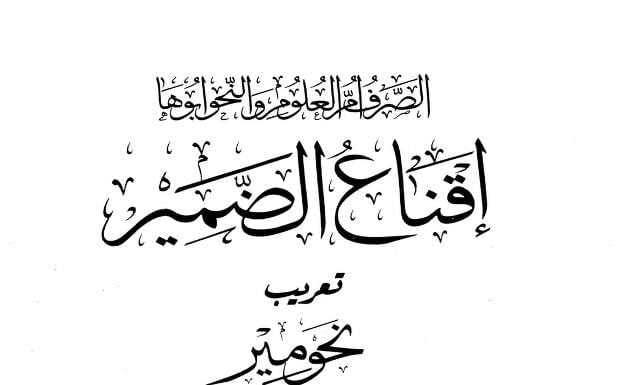 الصَّرفُ امُّ العُلُومِ والنَّحوُ ابُوهَا
إقنَاعُ الضَّمِير
تعريب
نحومير